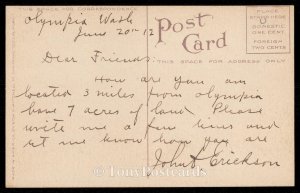 THE SPACE FOR CORRESPONDENCE
Olympia Wash
June 20th 12
Post
Card
THE SPACE FOR ADDRESS ONLY
PLACE
STAMP HERE
DOMESTIC
ONE CENT
FOREIGN
TWO CENTS
Dear Friends.
How are you am
located 3 miles from Olympia
have 7 acres of land Please
write me a few lines and
let me know how you are
John Erickson
©TonyPostcards